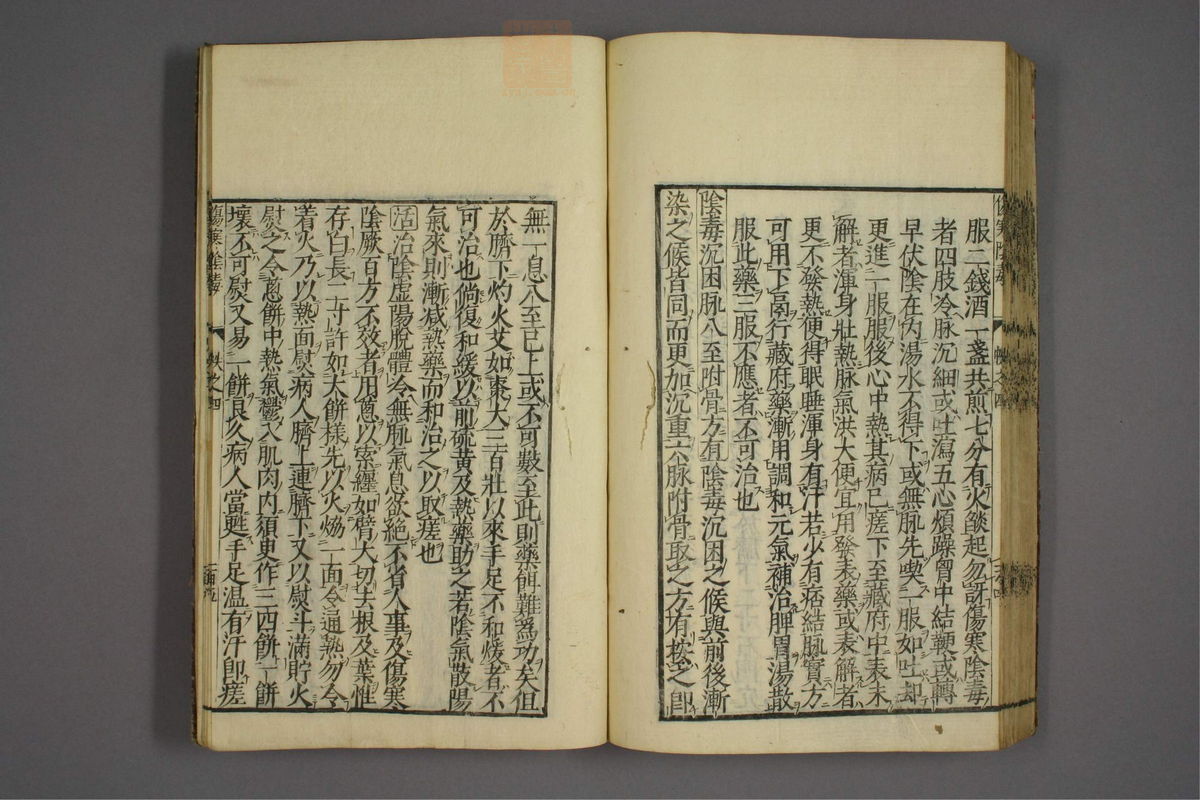 服二錢酒一盞共煎七分有火燄起勿訝傷寒陰毒
者四肢冷脉沉細或吐瀉五心煩躁胷中結鞕或轉
早伏陰在內湯水不得下或無脉先喫一服如吐却
更進一服服後心中熱其病已瘥下至藏府中表未
解者渾身壯熱脉氣洪大便宜用發表藥或表解者
更不發熱便得眠睡渾身有汗若少有痞結脉實方
可用下鬲行藏府藥漸用調和元氣補治脾胃湯散
服此藥三服不應者不可治也
陰毒沉困脉八至附骨方有陰毒沉困之候與前後漸
染之候皆同而更加沉重六脉附骨取之方有按之卽
無一息八至已上或不可數至此則藥餌難爲功矣但
於臍下灼火艾如棗大三百壯以來手足不和煖者不
可治也倘復和緩以前硫黃及熱藥助之若陰氣散陽
氣來則漸减熱藥而和治之以取瘥也
活治陰虛陽脫體冷無脉氣息欲絕不省人事及傷寒
陰厥百方不效者用蔥以索纏如臂大切去根及葉惟
存白長二寸許如大餅樣先以火煿一面令通熱勿令
着火乃以熱面熨病人臍上連臍下又以熨斗滿貯火
熨之令蔥餅中熱氣鬱入肌肉內須更作三四餅一餅
壞不可熨又易一餅良久病人當甦手足溫有汗卽瘥
傷寒陰毒
帙之四